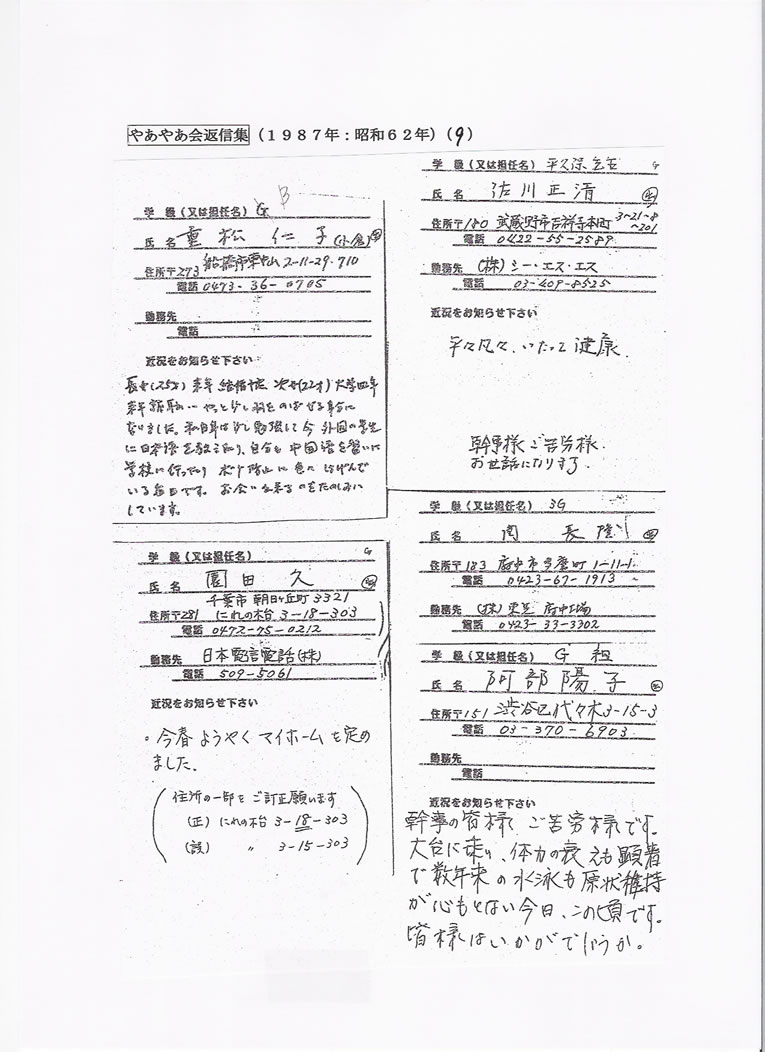 やあやあ会返信集 (1987年:昭和62年) (9)
学 級(又は担任名) G B
氏 名 重松 仁子 (小倉)
住所〒273 船橋市東中山 2-11-29-710
電話 0473-36-0705
勤務先
電話
近況をお知らせ下さい
長女(25才) 来年 結婚予定 次女(22才) 大学四年
来年就職… やっと少し羽をのばせる身分に
なりました。私自身は少し勉強して今 外国の学生
に日本語を教えたり、自分も中国語を習いに
学校に行ったり ボケ防止に色々はげんで
いる毎日です。お会い出来るのをたのしみに
しています。
学 級(又は担任名) G
氏 名 園田 久
千葉市 朝日ヶ丘町 3321
住所〒281 にれの木台 3-18-303
電話 0472-75-0212
勤務先 日本電信電話(株)
電話 509-5061
近況をお知らせ下さい
・今春 ようやく マイホームを定め
ました。
住所の一部を ご訂正願います
(正) にれの木台 3-18-303
(誤) 〃 3-15-303
学 級(又は担任名) G
氏 名 佐川正清
住所〒180 武蔵野市吉祥寺本町 3-21-8
-201
電話 0422-55-2589
勤務先 (株) シー・エス・エス
電話 03-409-8525
近況をお知らせ下さい
平々凡々、いたって健康.
幹事様ご苦労様.
お世話になります.
学 級(又は担任名) 3G
氏 名 関 長隆
住所〒183 府中市多磨町 1-11-1
電話 0423-67-1913
勤務先 (株) 東芝 府中工場
電話 0423-33-3302
学 級(又は担任名) G 組
氏 名 阿部陽子
住所〒151 渋谷区代々木3-15-3
電話 03-370-6903
勤務先
電話
近況をお知らせ下さい
幹事の皆様 ご苦労様です。
大台に乗り、体力の衰えも顕著
で数年来の水泳も原状維持
が心もとない今日、この頃です。
皆様はいかがでしょうか。